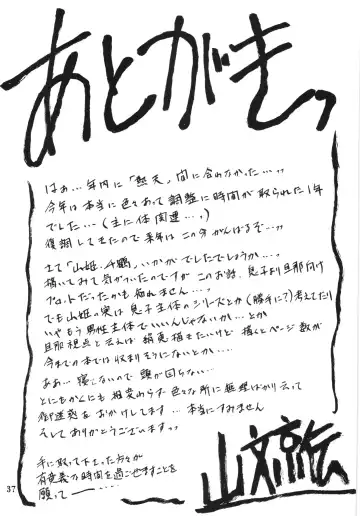 あとがきっ
はぁ…年内に「熱天」間に合わなかった…〃
今年は本当に色々あって調整に時間が取られた1年
でした…(主に体関連…。)
復調してきたので来年はこの分がんばるぞ…〃
さて「山姫、千鶴」いかがでしたでしょうか…。
描いてみて気がついたのですが このお話、息子より旦那向け
プロットだったかも知れません…
でも山姫の実は息子主体のシリーズとか(勝手に?)考えてたり
いやもう男性主体でいいんじゃないか…とか
旦那視点と云えば 絹恵も描きたいけど 描くとページ数が
今までの本では収まりそうにないとか…
ああ…寝てないので頭が回らない…
とにもかくにも相変わらず色々な所に無理ばかり云って
御迷惑をおかけしてます…本当にすみません
そしてありがとうございますっ〃
手に取って下さった方々が
有意義な時間を過ごせますことを
願って――…
山文京伝
37